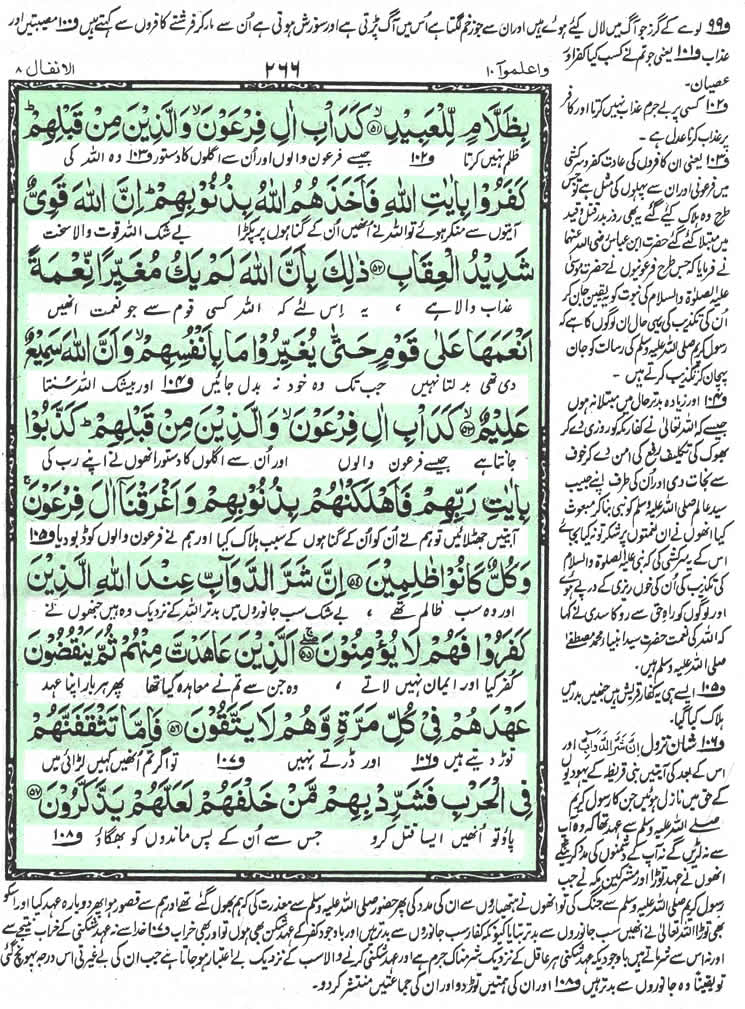 و۹۹ لوہے کے گرز جو آگ میں لال کیئے ہوئے ہیں اور ان سے جو زخم لگتا ہے اُس میں آگ پڑتی ہے اور سوزش ہوتی ہے اُن سے مار کر فرشتے کافروں سے کہتے ہیں و۱۰۰ مصیبتیں اور
عذاب و۱۰۱ یعنی جو تم نے کسب کیا کفر اور
عصیان۔
الانفال ۸
۲۶۶
واعلموا ۱۰
بِظَلَّامٍ لِّلْعَبِیْدِ ﴿۵۱﴾ كَدَاْبِ اٰلِ فِرْعَوْنَ ۙ وَالَّذِیْنَ مِنْ قَبْلِهِمْ ؕ
ظلم نہیں کرتا و۱۰۲ جیسے فرعون والوں اور ان سے اگلوں کا دستور و۱۰۳ وہ اللہ کی
كَفَرُوْا بِاٰیٰتِ اللّٰهِ فَاَخَذَهُمُ اللّٰهُ بِذُنُوْبِهِمْ ؕ اِنَّ اللّٰهَ قَوِیٌّ
آیتوں سے منکر ہوئے تو اللہ نے اُنھیں اُن کے گناہوں پر پکڑا بے شک اللہ قوت والا سخت
شَدِیْدُ الْعِقَابِ ﴿۵۲﴾ ذٰلِكَ بِاَنَّ اللّٰهَ لَمْ یَكُ مُغَیِّرًا نِّعْمَةً
عذاب والا ہے ، یہ اِس لئے کہ اللہ کسی قوم سے جو نعمت انھیں
اَنْعَمَهَا عَلٰی قَوْمٍ حَتّٰی یُغَیِّرُوْا مَا بِاَنْفُسِهِمْ ۙ وَاَنَّ اللّٰهَ سَمِیْعٌ
دی تھی بدلتا نہیں جب تک وہ خود نہ بدل جائیں و۱۰۴ اور بیشک اللہ سُنتا
عَلِیْمٌ ﴿۵۳﴾ كَدَاْبِ اٰلِ فِرْعَوْنَ ۙ وَالَّذِیْنَ مِنْ قَبْلِهِمْ ؕ كَذَّبُوْا
جانتا ہے جیسے فرعون والوں اور اُن سے اگلوں کا دستور انھوں نے اپنے رب کی
بِاٰیٰتِ رَبِّهِمْ فَاَهْلَكْنٰهُمْ بِذُنُوْبِهِمْ وَاَغْرَقْنَاۤ اٰلَ فِرْعَوْنَ ۚ
آیتیں جھٹلائیں تو ہم نے اُن کو اُن کے گناہوں کے سبب ہلاک کیا اور ہم نے فرعون والوں کو ڈبو دیا و۱۰۵
وَكُلٌّ كَانُوْا ظٰلِمِیْنَ ﴿۵۴﴾ اِنَّ شَرَّ الدَّوَآبِّ عِنْدَ اللّٰهِ الَّذِیْنَ
اور وہ سب ظالم تھے ، بے شک سب جانوروں میں بدتر اللہ کے نزدیک وہ ہیں جنھوں نے
كَفَرُوْا فَهُمْ لَا یُؤْمِنُوْنَ ﴿۵۵﴾ اَلَّذِیْنَ عَاهَدْتَّ مِنْهُمْ ثُمَّ یَنْقُضُوْنَ
کفر کیا اور ایمان نہیں لاتے ، وہ جن سے تم نے معاہدہ کیا تھا پھر ہر بار اپنا عہد
عَهْدَهُمْ فِیْ كُلِّ مَرَّةٍ وَّهُمْ لَا یَتَّقُوْنَ ﴿۵۶﴾ فَاِمَّا تَثْقَفَنَّهُمْ
توڑ دیتے ہیں و۱۰۶ اور ڈرتے نہیں و۱۰۷ تو اگر تم اُنھیں کہیں لڑائی میں
فِی الْحَرْبِ فَشَرِّدْ بِهِمْ مَّنْ خَلْفَهُمْ لَعَلَّهُمْ یَذَّكَّرُوْنَ ﴿۵۷﴾
پاؤ تو اُنھیں ایسا قتل کرو جس سے اُن کے پس ماندوں کو بھگاؤ و۱۰۸
و۱۰۲ کسی پر بے جرم عذاب نہیں کرتا اور کافر
پر عذاب کرنا عدل ہے ۔
و۱۰۳ یعنی ان کافروں کی عادت کفر و سرکشی
میں فرعونی اور ان سے پہلوں کی مثل ہے تو جس
طرح وہ ہلاک کیے گئے یہ بھی روز بدر قتل و قید
میں مبتلا کئے گئے حضرت ابن عباس رضی اللہ عنہما
نے فرمایا کہ جس طرح فرعونیوں نے حضرت موسیٰ
علیہ الصلوٰۃ والسلام کی نبوت کو بیقین جان کر
اُن کی تکذیب کی یہی حال ان لوگوں کا ہے کہ
رسول کریم صلی اللہ علیہ وسلم کی رسالت کو جان
پہچان کر تکذیب کرتے ہیں ۔
و۱۰۴ اور زیادہ بدتر حال میں مبتلا نہ ہوں
جیسے کہ اللہ تعالیٰ نے کفار مکہ کو روزی دے کر
بھوک کی تکلیف رفع کی امن دے کر خوف
سے نجات دی اور اُن کی طرف اپنے حبیب
سید عالم صلی اللہ علیہ وسلم کو نبی بنا کر مبعوث
کیا انھوں نے ان نعمتوں پر شکر تو نہ کیا بجائے
اس کے یہ سرکشی کی کہ نبی علیہ الصلوٰۃ والسلام
کی تکذیب کی اُن کی خوں ریزی کے درپے ہوئے
اور لوگوں کو راہِ حق سے روکا سدی نے کہا
کہ اللہ کی نعمت حضرت سید انبیا محمد مصطفےٰ
صلی اللہ علیہ وسلم ہیں۔
و۱۰۵ ایسے ہی یہ کفار قریش ہیں جنھیں بدر میں
ہلاک کیا گیا۔
و۱۰۶ شان نزول اِنَّ شَرَّ الدَّوَآبِّ اور
اس کے بعد کی آیتیں بنی قریظہ کے یہودیوں
کے حق میں نازل ہوئیں جن کا رسول کریم
صلے اللہ علیہ وسلم سے عہد تھا کہ وہ آپ
سے نہ لڑیں گے نہ آپ کے دشمنوں کی مدد کریں گے
انھوں نے عہد توڑا اور مشرکین مکہ نے جب
رسول کریم صلی اللہ علیہ وسلم سے جنگ کی تو انھوں نے ہتھیاروں سے ان کی مدد کی پھر حضور صلی اللہ علیہ وسلم سے معذرت کی کہ ہم بھول گئے تھے اور ہم سے قصور ہوا پھر دوبارہ عہد کیا اور اسکو
بھی توڑا اللہ تعالیٰ نے انھیں سب جانوروں سے بدتر بتایا کیونکہ کفار سب جانوروں سے بدتر ہیں اور باوجود کفر کے عہد شکن بھی ہوں تو اور بھی خراب و۱۰۷ خدا سے نہ عہد شکنی کے خراب نتیجے سے
اور نہ اس سے شرماتے ہیں باوجودیکہ عہد شکنی ہر عاقل کے نزدیک شرمناک جرم ہے اور عہد شکنی کرنے والا سب کے نزدیک بے اعتبار ہو جاتا ہے جب ان کی بے غیرتی اس درجہ پہونچ گئی
تو یقیناً وہ جانوروں سے بدتر ہیں و۱۰۸ اور ان کی ہمتیں توڑ دو اور ان کی جماعتیں منتشر کر دو۔